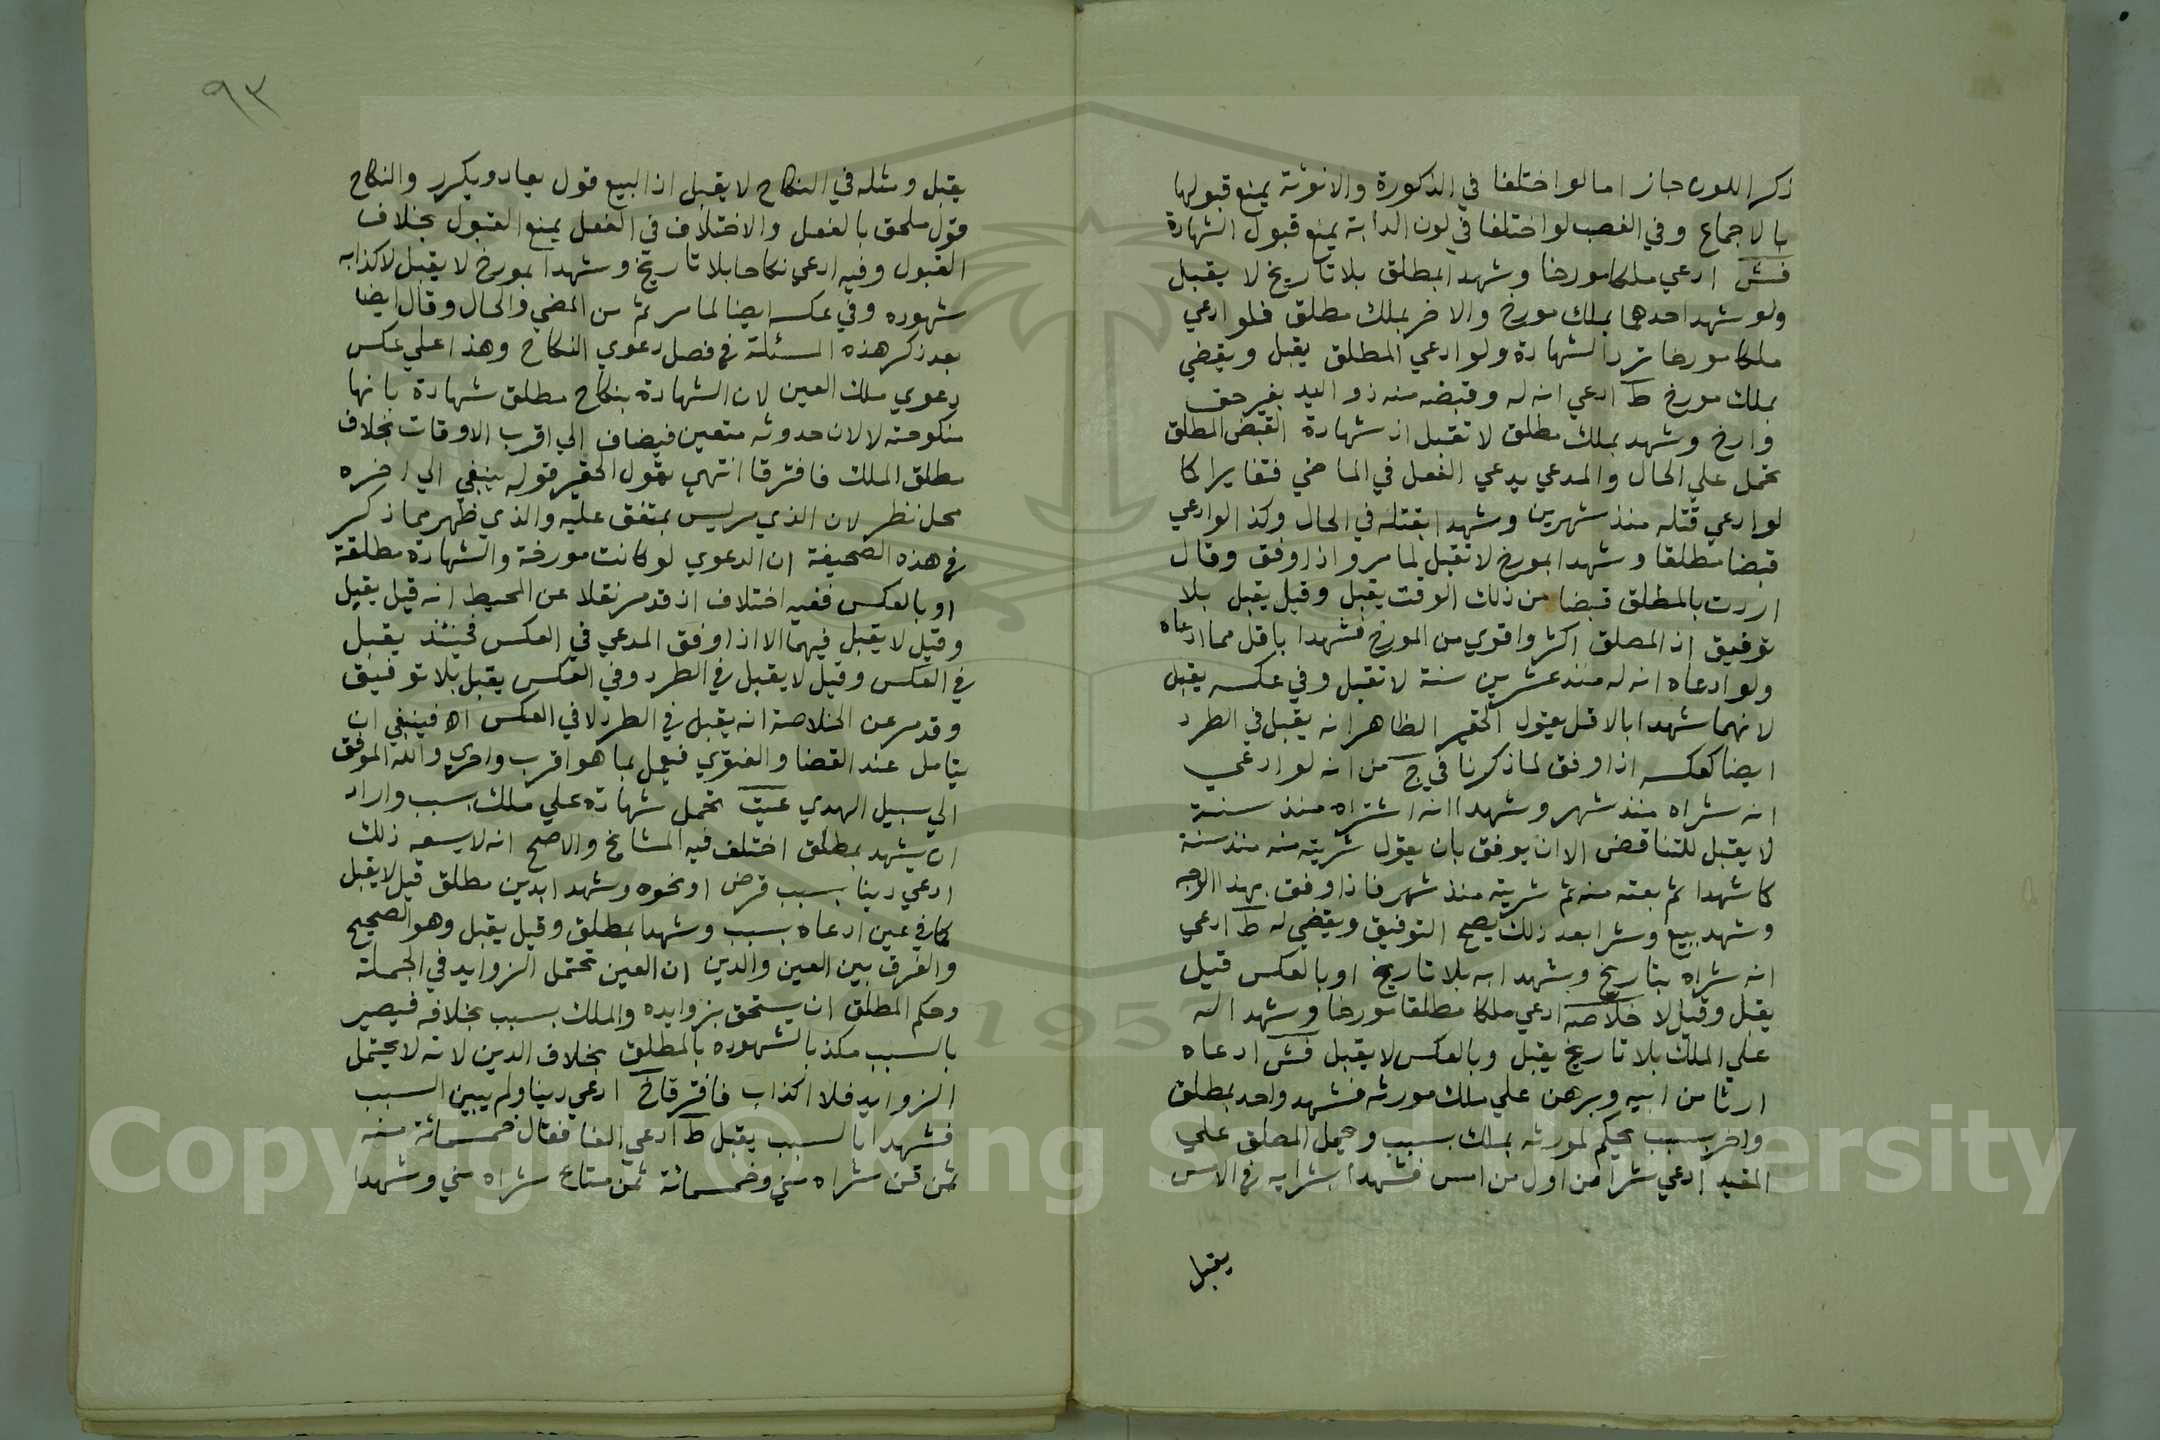 ذكر اللون جاز اما لو اختلفا في الذكورة والانوثة يمنع قبولها
بالاجماع وفي الغصب لو اختلفا في لون الدابة يمنع قبول الشهادة
فش ادعي ملكا مورخا وشهدا بمطلق بلا تاريخ لا يقبل
ولو شهد احدهما بملك مورخ والاخر بملك مطلق فلو ادعي
ملكا مورخا ترد الشهادة ولو ادعي المطلق يقبل ويقضي
بملك مورخ ط ادعي انه له وقبضه منه ذو اليد بغير حق
وارخ وشهد بملك مطلق لا تقبل اذ شهادة القبض المطلق
تحمل علي الحال والمدعي يدعي الفعل في الماضي فتغايرا كما
لو ادعي قتله منذ شهرين وشهدا بقتله في الحال وكذا لو ادعي
قبضا مطلقا وشهدا بمورخ لا تقبل لما مر واذا وفق وقال
اردت بالمطلق قبضا من ذلك الوقت يقبل وقيل يقبل بلا
توفيق اذ المطلق اكثر واقوي من المورخ فشهدا باقل مما ادعاه
ولو ادعاه انه له منذ عشرين سنة لا تقبل وفي عكسه يقبل
لانهما شهدا بالاقل يقول الحقير الظاهر انه يقبل في الطرد
ايضا كعكسه اذا وفق لما ذكرنا في ج من انه لو ادعي
انه شراه منذ شهر وشهدا انه اشتراه منذ سنة
لا يقبل للتناقض الا ان يوفق بان يقول شريته منه منذ سنة
كما شهدا ثم بعته منه ثم شريته منذ شهر فاذا وفق بهذا الوجه
وشهد ببيع وشرا بعد ذلك يصح التوفيق ويقضي له ط ادعي
انه شراه بتاريخ وشهدا به بلا تاريخ او بالعكس قيل
يقبل وقيل لا خلاصة ادعي ملكا مطلقا مورخا وشهدا له
علي الملك بلا تاريخ يقبل وبالعكس لا يقبل فش ادعاه
ارثا من ابيه وبرهن علي ملك مورثه فشهد واحد بمطلق
واخر بسبب يحكم لمورثه بملك بسبب وحمل المطلق علي
المقيد ادعي شرا من اول من امس فشهدا بشرايه في الامس
يقبل
٩٣
يقبل ومثله في النكاح لا يقبل اذ البيع قول يعاد ويكرر والنكاح
قول ملحق بالفعل والاختلاف في الفعل يمنع القبول بخلاف
القبول وفيه ادعي نكاحا بلا تاريخ وشهدا بمورخ لا يقبل لاكذابه
شهوده وفي عكسه ايضا لما مر ثم من المضي والحال وقال ايضا
بعد ذكر هذه المسئلة في فصل دعوي النكاح وهذا علي عكس
دعوي ملك العين لان الشهادة بنكاح مطلق شهادة بانها
منكوحته لا لان حدوثه متعين فيضاف الي اقرب الاوقات بخلاف
مطلق الملك فافترقا انتهي يقول الحقير قوله ينبغي الي اخره
محل نظر لان الذي مر ليس بمتفق عليه والذي ظهر مما ذكر
في هذه الصحيفة ان الدعوي لو كانت مورخة والشهادة مطلقة
او بالعكس ففيه اختلاف اذ قد مر نقلا عن المحيط انه قيل يقبل
وقيل لا يقبل فيهما الا اذا وفق المدعي في العكس فحينئذ يقبل
في العكس وقيل لا يقبل في الطرد وفي العكس يقبل بلا توفيق
وقد مر عن الخلاصة انه يقبل في الطرد لا في العكس اه فينبغي ان
يتامل عند القضا والفتوي فيعمل بما هو اقرب واحري والله الموفق
الي سبيل الهدي عيت تحمل شهادة علي ملك بسبب واراد
ان يشهد بمطلق اختلف فيه المشايخ والاصح انه لا يسعه ذلك
ادعي دينا بسبب قرض او نحوه وشهدا بدين مطلق قيل لا يقبل
كما في عين ادعاه بسبب وشهدا بمطلق وقيل يقبل وهو الصحيح
والفرق بين العين والدين ان العين تحتمل الزوايد في الجملة
وحكم المطلق ان يستحق بزوايده والملك بسبب بخلافه فيصير
بالسبب مكذبا لشهوده بالمطلق بخلاف الدين لانه لا يحتمل
الزوايد فلا اكذاب فافترقا خ ادعي دينا ولم يبين السبب
فشهدا بالسبب يقبل ط ادعي الفا فقال خمسمائة منه
ثمن قن شراه مني وخمسمائة ثمن متاع شراه مني وشهدا
Copyright © King Saud University
1957